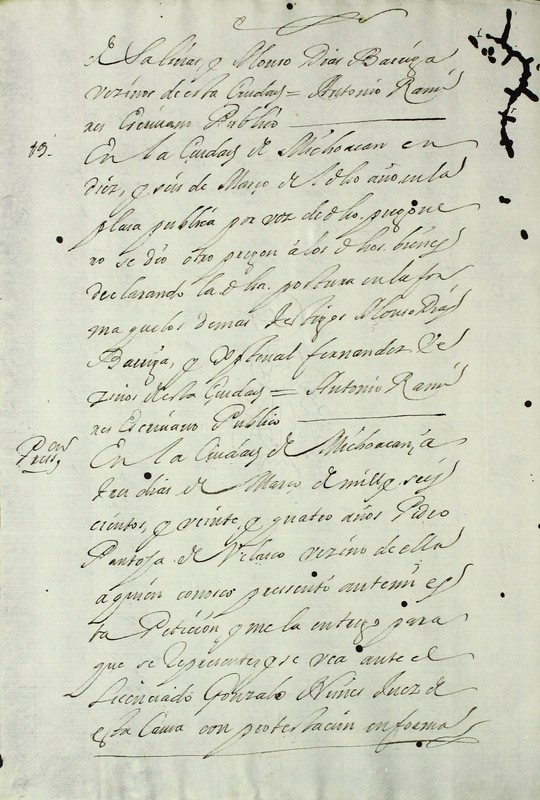 de Salinas, y Alonso Dias Barriga
vezinos de esta Ciudad = Antonio Rami
res Escrivano Publico
13.
En la Ciudad de Michoacan en
diez, y seis de Março de l dho año, en la
plasa publica por voz de dho. pregone
ro se dio otro pregon à los dhos. bienes
declarando la dha. postura en la for
ma que los demas testigos Alonso Dias
Barriga, y Xptobal fernandez Ve
zinos de esta Ciudad = Antonio Rami
res Escrivano Publico
En la Ciudad de Michoacan, a
tres dias de Março de mill, y seis
cientos, y veinte, y quatro años Pedro
Pantoja de Velasco vezino de ella
a quien conosco presentó ante mi es
ta Peticion, y me la entregò para
que se represente, y se vea ante el
Licenciado Gonzalo Nuñes Juez de
esta Causa con protestacion en forma